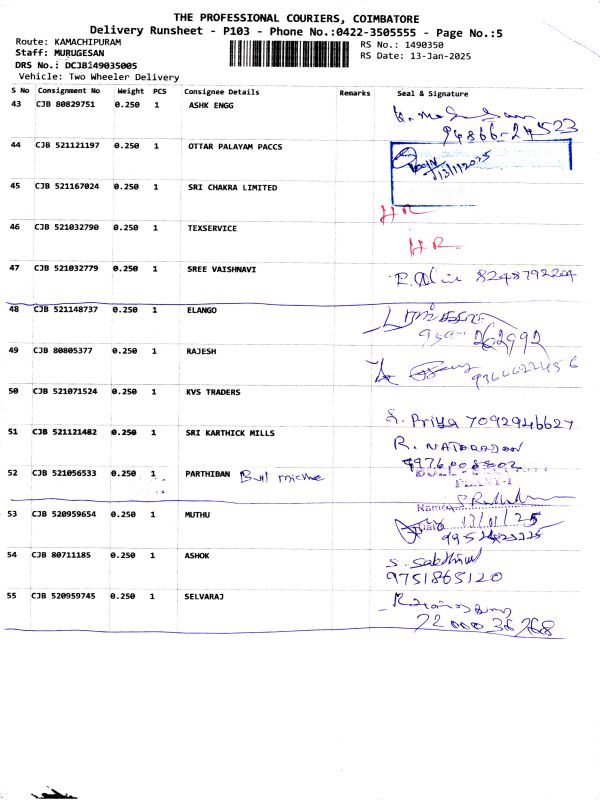 THE PROFESSIONAL COURIERS, COIMBATORE
Delivery Runsheet - P103 - Phone No.:0422-3505555 - Page No.:5
Route: KAMACHIPURAM RS No.: 1490350
Staff: MURUGESAN RS Date: 13-Jan-2025
DRS No.: DCJB149035005
Vehicle: Two Wheeler Delivery
S No Consignment No Weight PCS Consignee Details Remarks Seal & Signature
43 CJB 80829751 0.250 1 ASHK ENGG
94866-24523
44 CJB 521121197 0.250 1 OTTAR PALAYAM PACCS
13/1/2025
45 CJB 521167024 0.250 1 SRI CHAKRA LIMITED
HR
46 CJB 521032790 0.250 1 TEXSERVICE
HR
47 CJB 521032779 0.250 1 SREE VAISHNAVI 8248792204
48 CJB 521148737 0.250 1 ELANGO
262992
49 CJB 80805377 0.250 1 RAJESH
50 CJB 521071524 0.250 1 KVS TRADERS
S. Priya 7092946627
51 CJB 521121482 0.250 1 SRI KARTHICK MILLS
R. NATARAJAN
52 CJB 521056533 0.250 1 PARTHIBAN
53 CJB 520959654 0.250 1 MUTHU
Name
Date 13/01/25
54 CJB 80711185 0.250 1 ASHOK
S. Sakthivel
9751865120
55 CJB 520959745 0.250 1 SELVARAJ
72000 36768